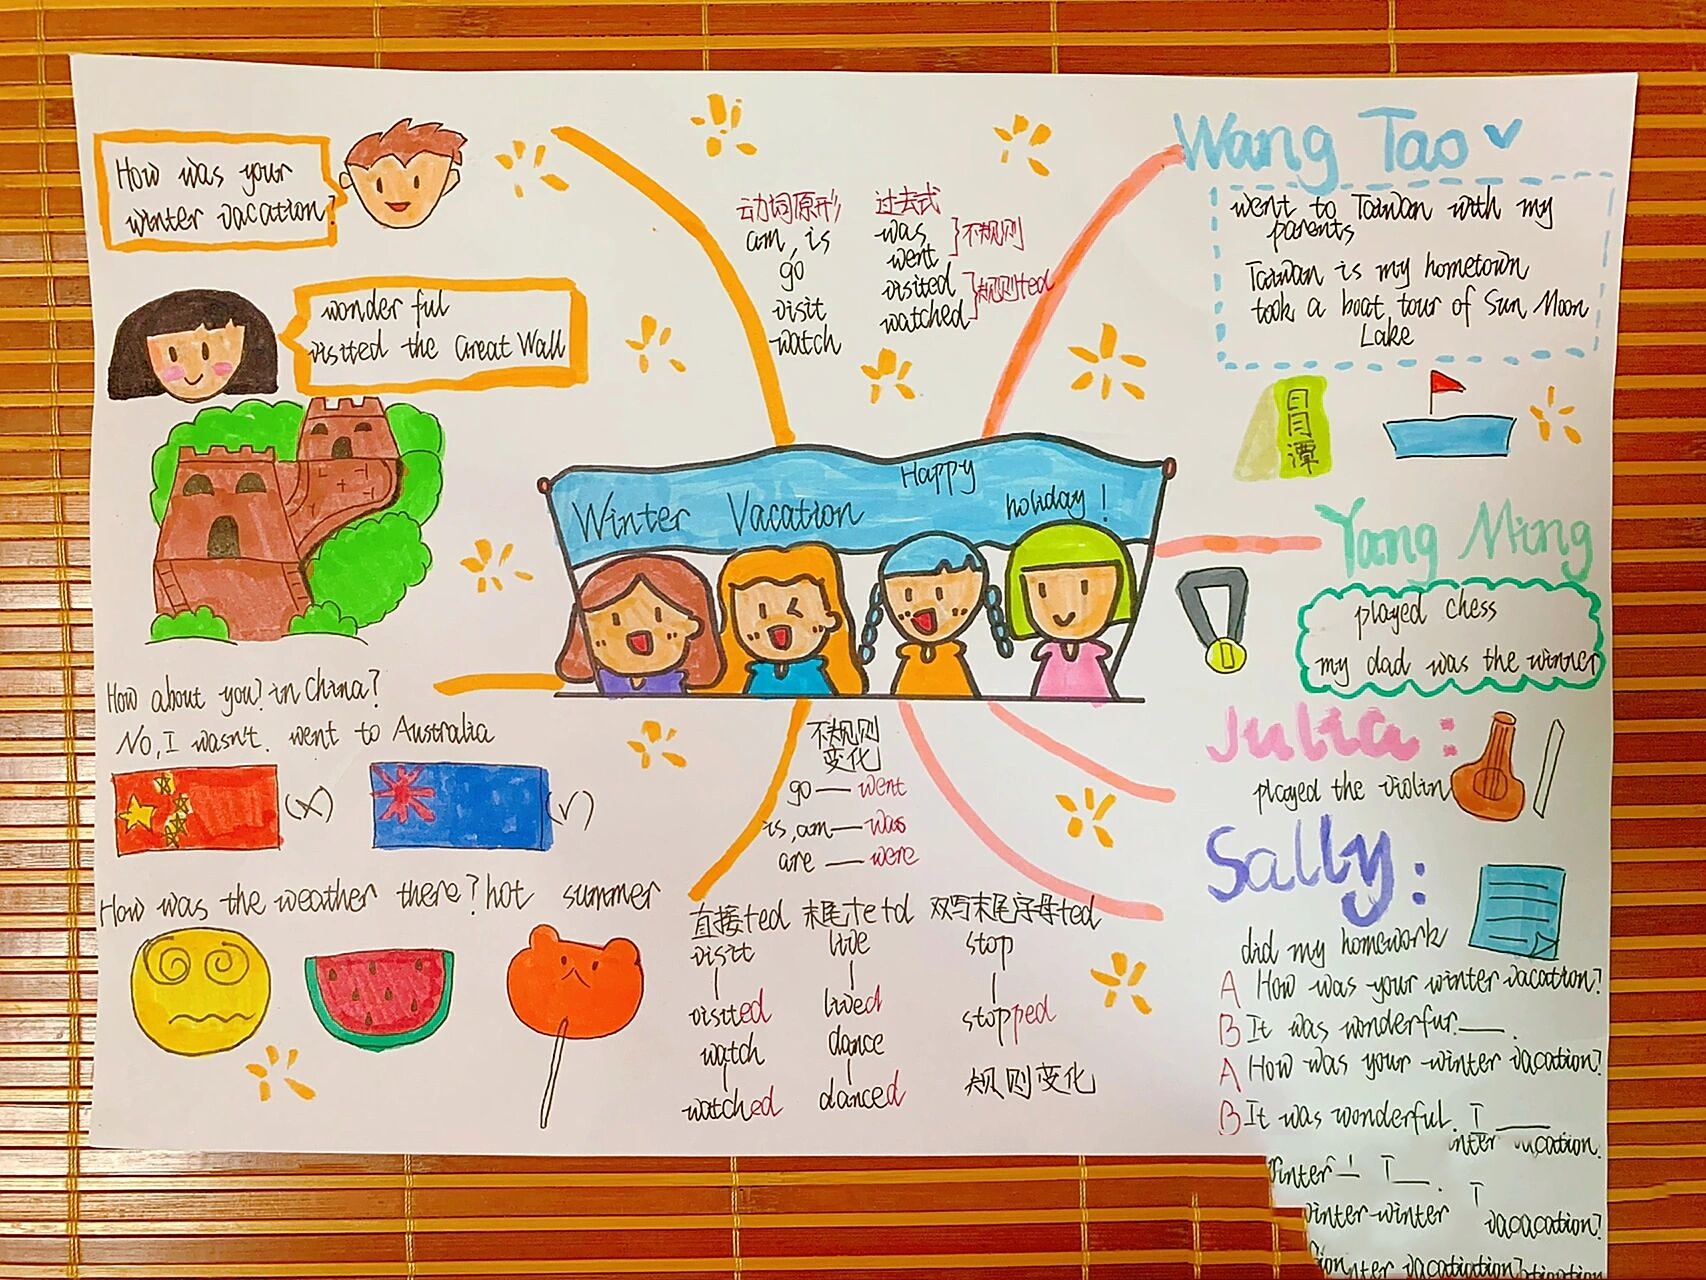 How was your
winter vacation?
wonderful
visited the Great Wall
How about you? in China?
No, I wasn't. went to Australia
(×)
(√)
How was the weather there? hot summer
动词原形 过去式
am, is was
go went
不规则
visit visited
watch watched
规则+ed
Winter Vacation Happy
holiday!
不规则
变化
go — went
is, am — was
are — were
直接+ed 末尾+e+d 双写末尾字母+ed
visit live stop
visited lived stopped
watch dance
watched danced
规则变化
Wang Tao
went to Taiwan with my
parents
Taiwan is my hometown
took a boat tour of Sun Moon
Lake
日月潭
Yang Ming
played chess
my dad was the winner
1
Julia:
played the violin
Sally:
did my homework
A How was your winter vacation?
B It was wonderfur.___.
A How was your winter vacation?
B It was wonderful. I ___
vacation.
winter I ___.
winter-winter I
vacacation?